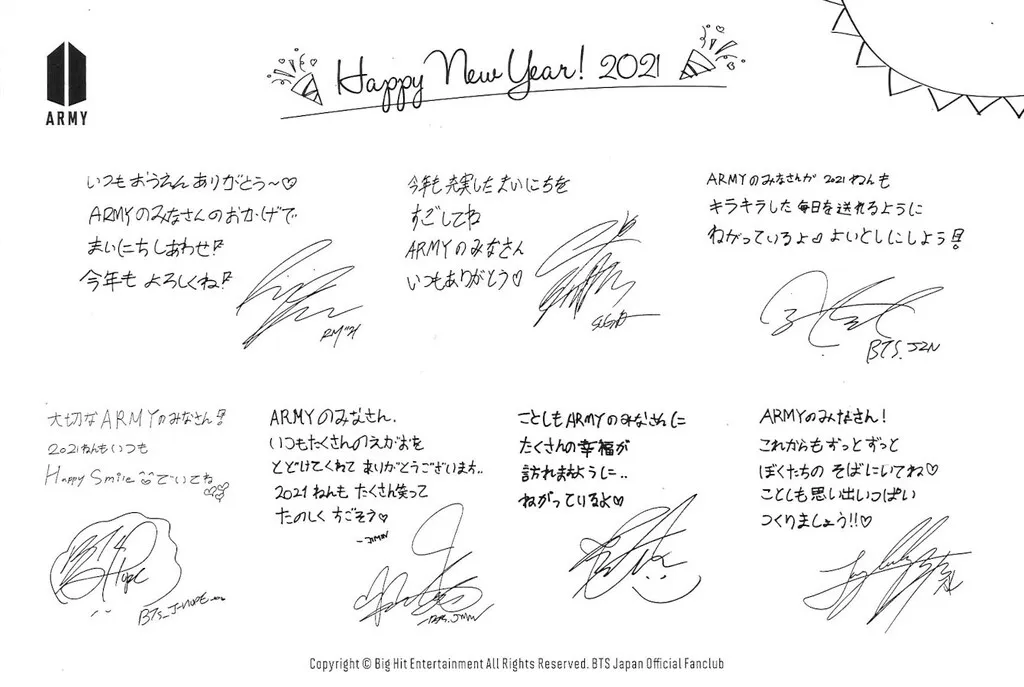 ARMY
Happy New Year! 2021
いつもおうえんありがとう〜♡
ARMYのみなさんのおかげで
まいにちしあわせ!
今年も よろしくね!
RM '21
今年も充実したまいにちを
すごしてね
ARMYのみなさん
いつもありがとう♡
SUGA
ARMYのみなさんが 2021ねんも
キラキラした毎日を送れるように
ねがっているよ♡よいとしにしよう!
BTS. JIN
大切なARMYのみなさん!
2021ねんもいつも
Happy Smile ^^でいてね
BTS_J-HOPE
ARMYのみなさん.
いつもたくさんのえがおを
とどけてくれて ありがとうございます..
2021ねんも たくさん笑って
たのしく すごそう♡
-JIMIN
-BTS. JIMIN
ことしもARMYのみなさんに
たくさんの幸福が
訪れますように..
ねがっているよ♡
ARMYのみなさん!
これからもずっとずっと
ぼくたちの そばにいてね♡
ことしも思い出いっぱい
つくりましょう!!♡
Copyright © Big Hit Entertainment All Rights Reserved. BTS Japan Official Fanclub